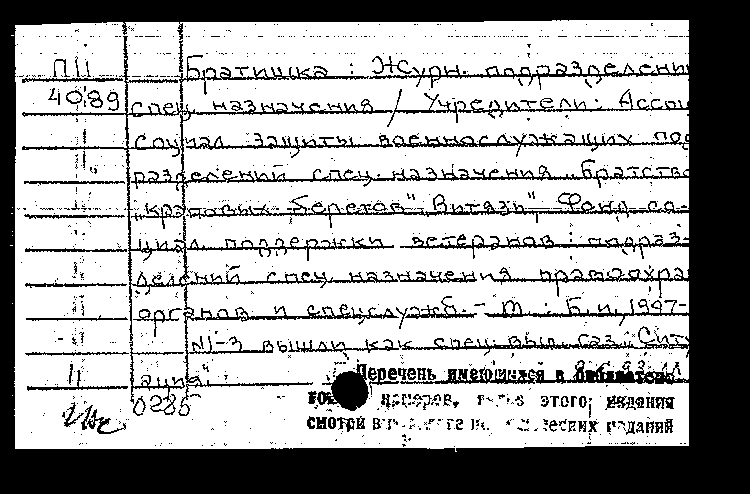 П11 Братишка : Журн. подразделени
4089 спец. назначения / Учредители: Ассоц
социал. защиты военнослужащих под
разделений спец. назначения „Братство
„краповых беретов" „Витязь", Фонд со-
циал. поддержки ветеранов подраз-
делений спец. назначения правоохра
органов и спецслужб. - М. : Б. и., 1997-
N1-3 вышли как спец. вып. газ. „Ситу
ация"
Перечень имеющихся в библиотеке
0285 номеров, этого издания
смотри в изданий